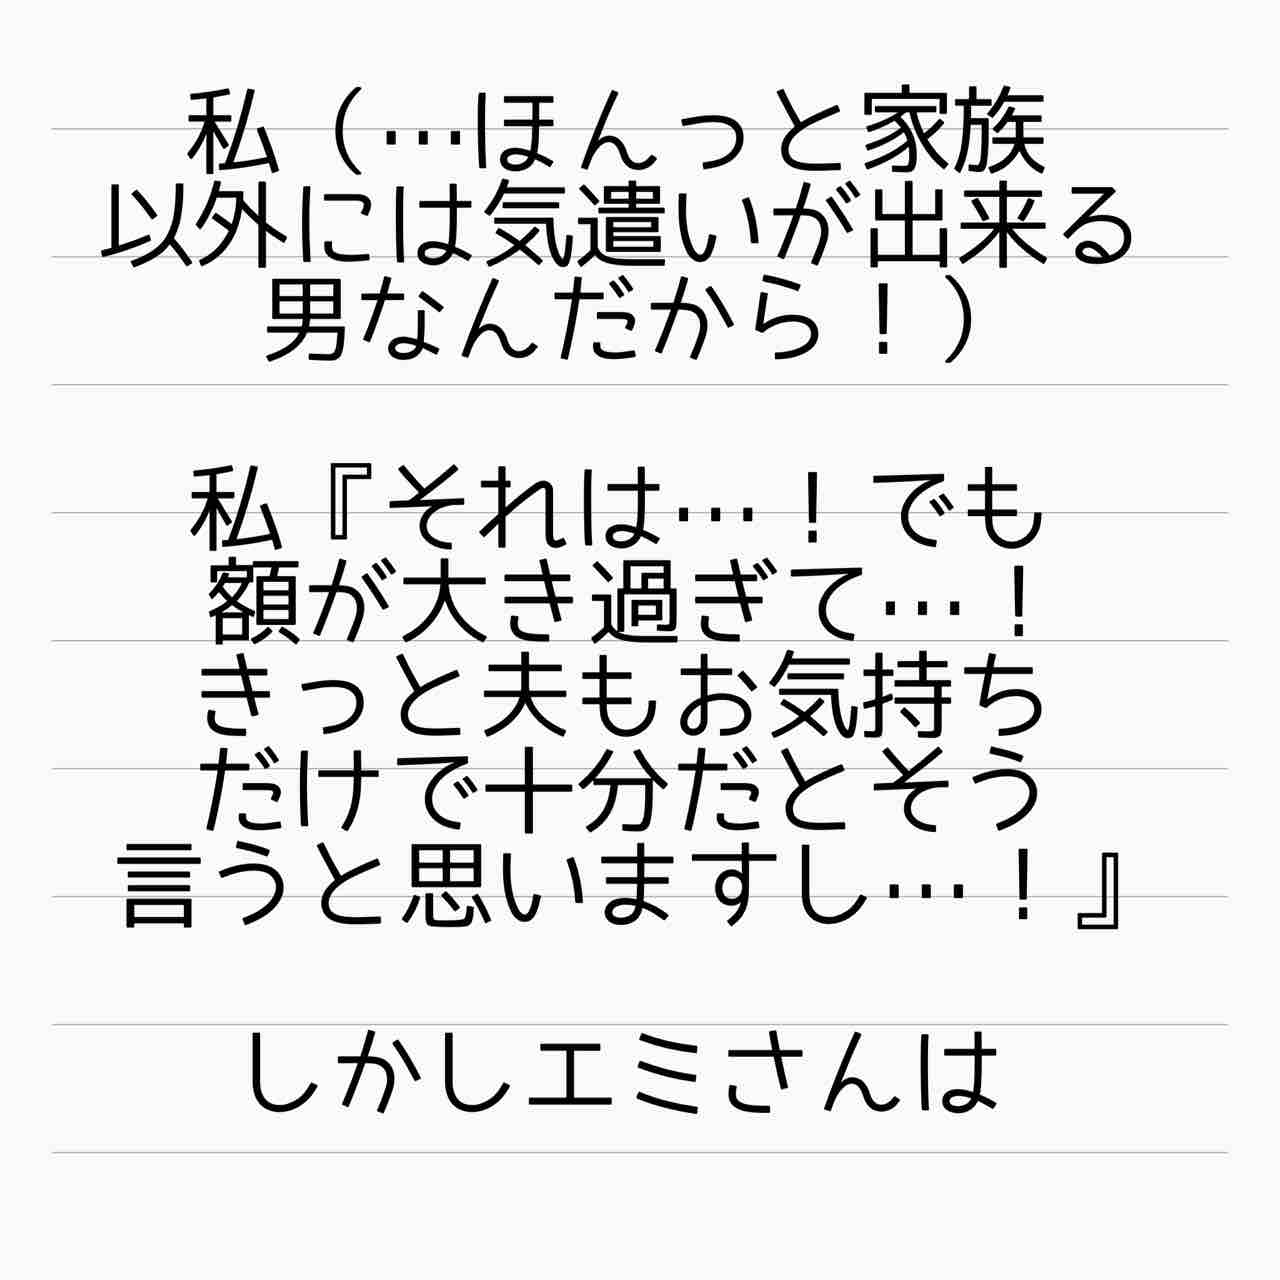 私（…ほんっと家族
以外には気遣いが出来る
男なんだから！）
私『それは…！でも
額が大き過ぎて…！
きっと夫もお気持ち
だけで十分だとそう
言うと思いますし…！』
しかしエミさんは